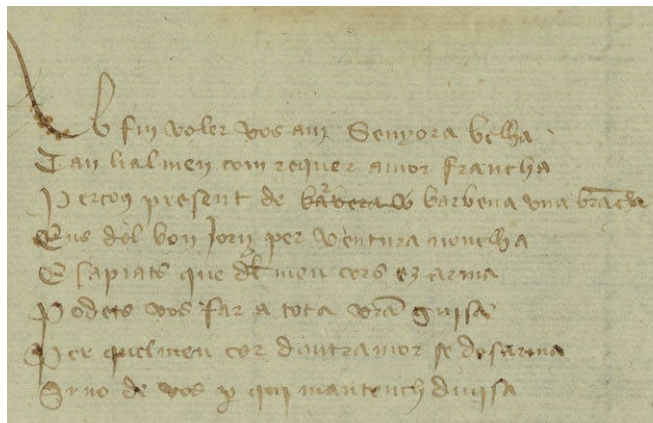 Ab fin voler vos am Senyora belha
Tan lialmen com requer amor francha
Per cous present de barbena una brācha
Eus dol bon Jorn per ventura novelha
E sapiats que dl meu cors ez arma
Podets vos far a tota vrā guisa
Per quel meu cor dautramor se desarma
Si no de vos p qui mantench divisa